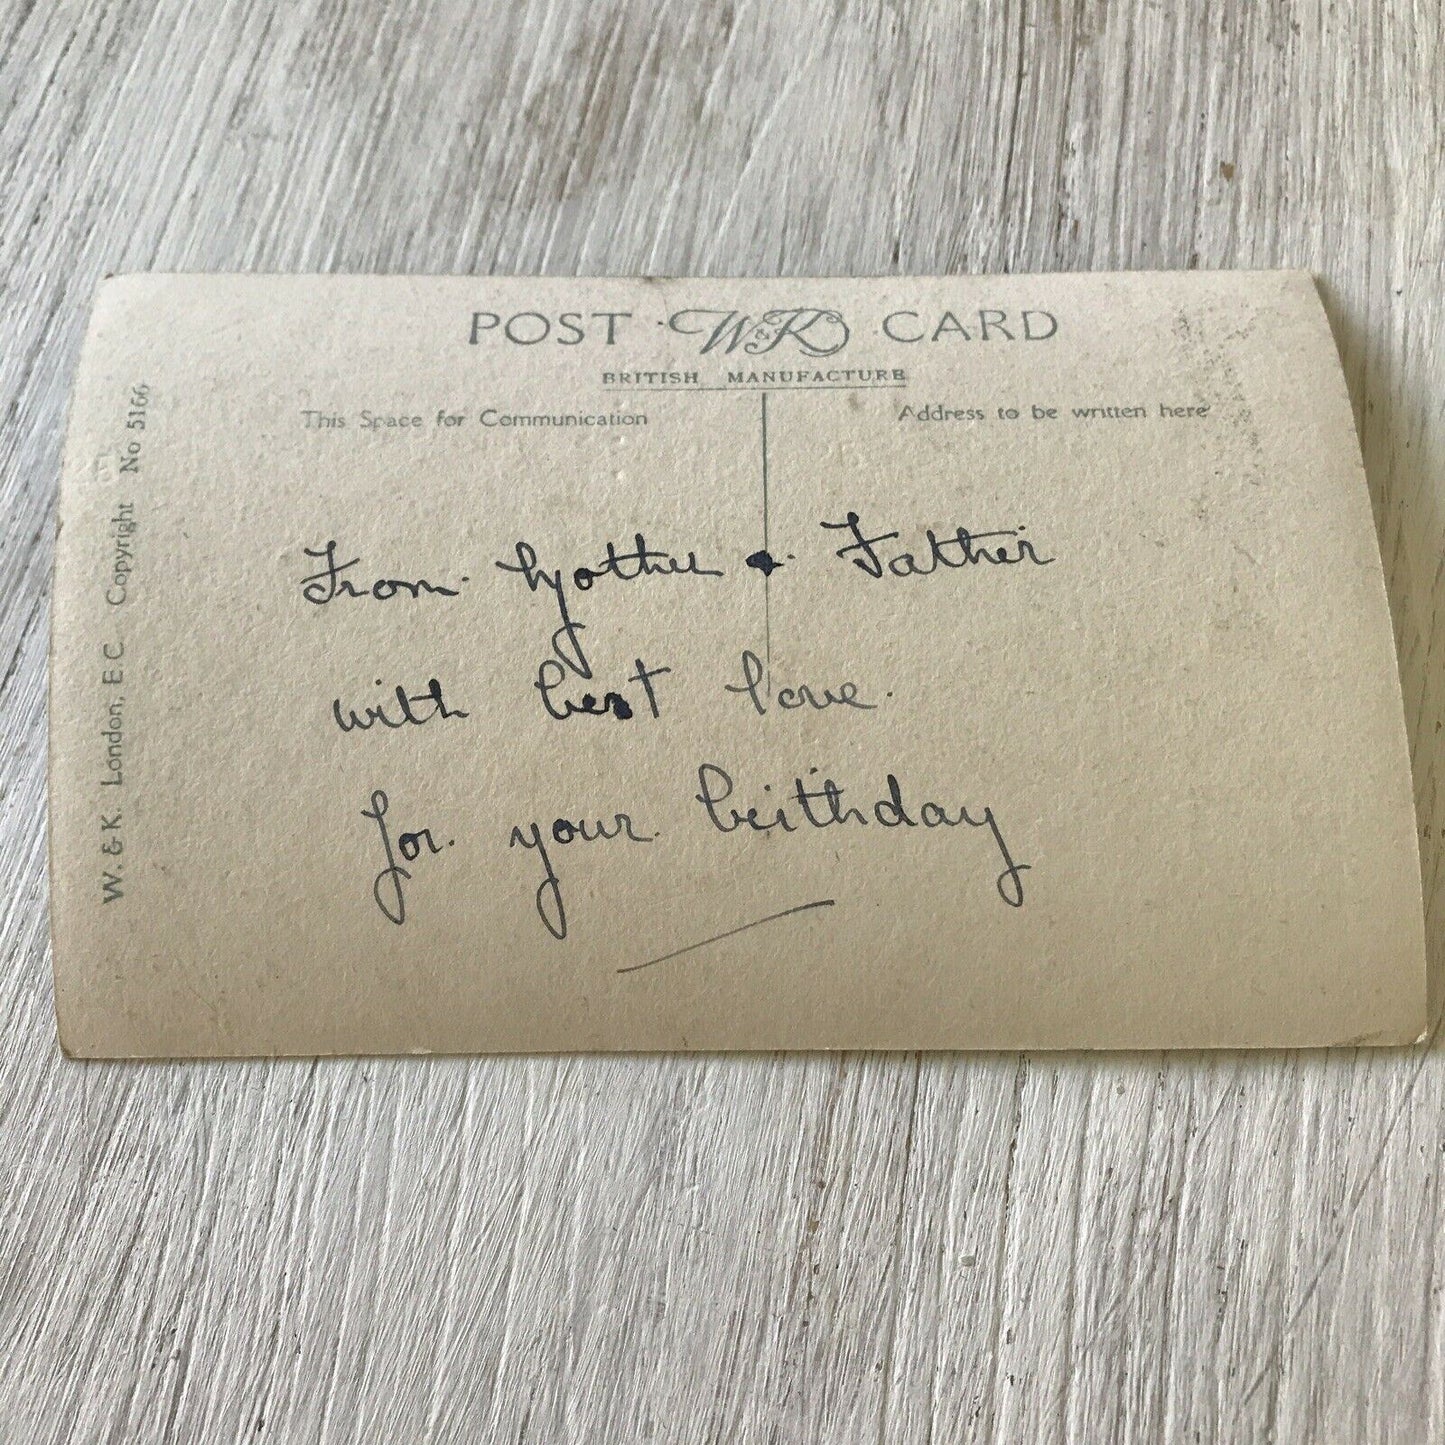 POST W&K CARD
BRITISH MANUFACTURE
This Space for Communication
Address to be written here
From Mother & Father
with best love
for your birthday
W. & K. London, E.C. Copyright No 5166